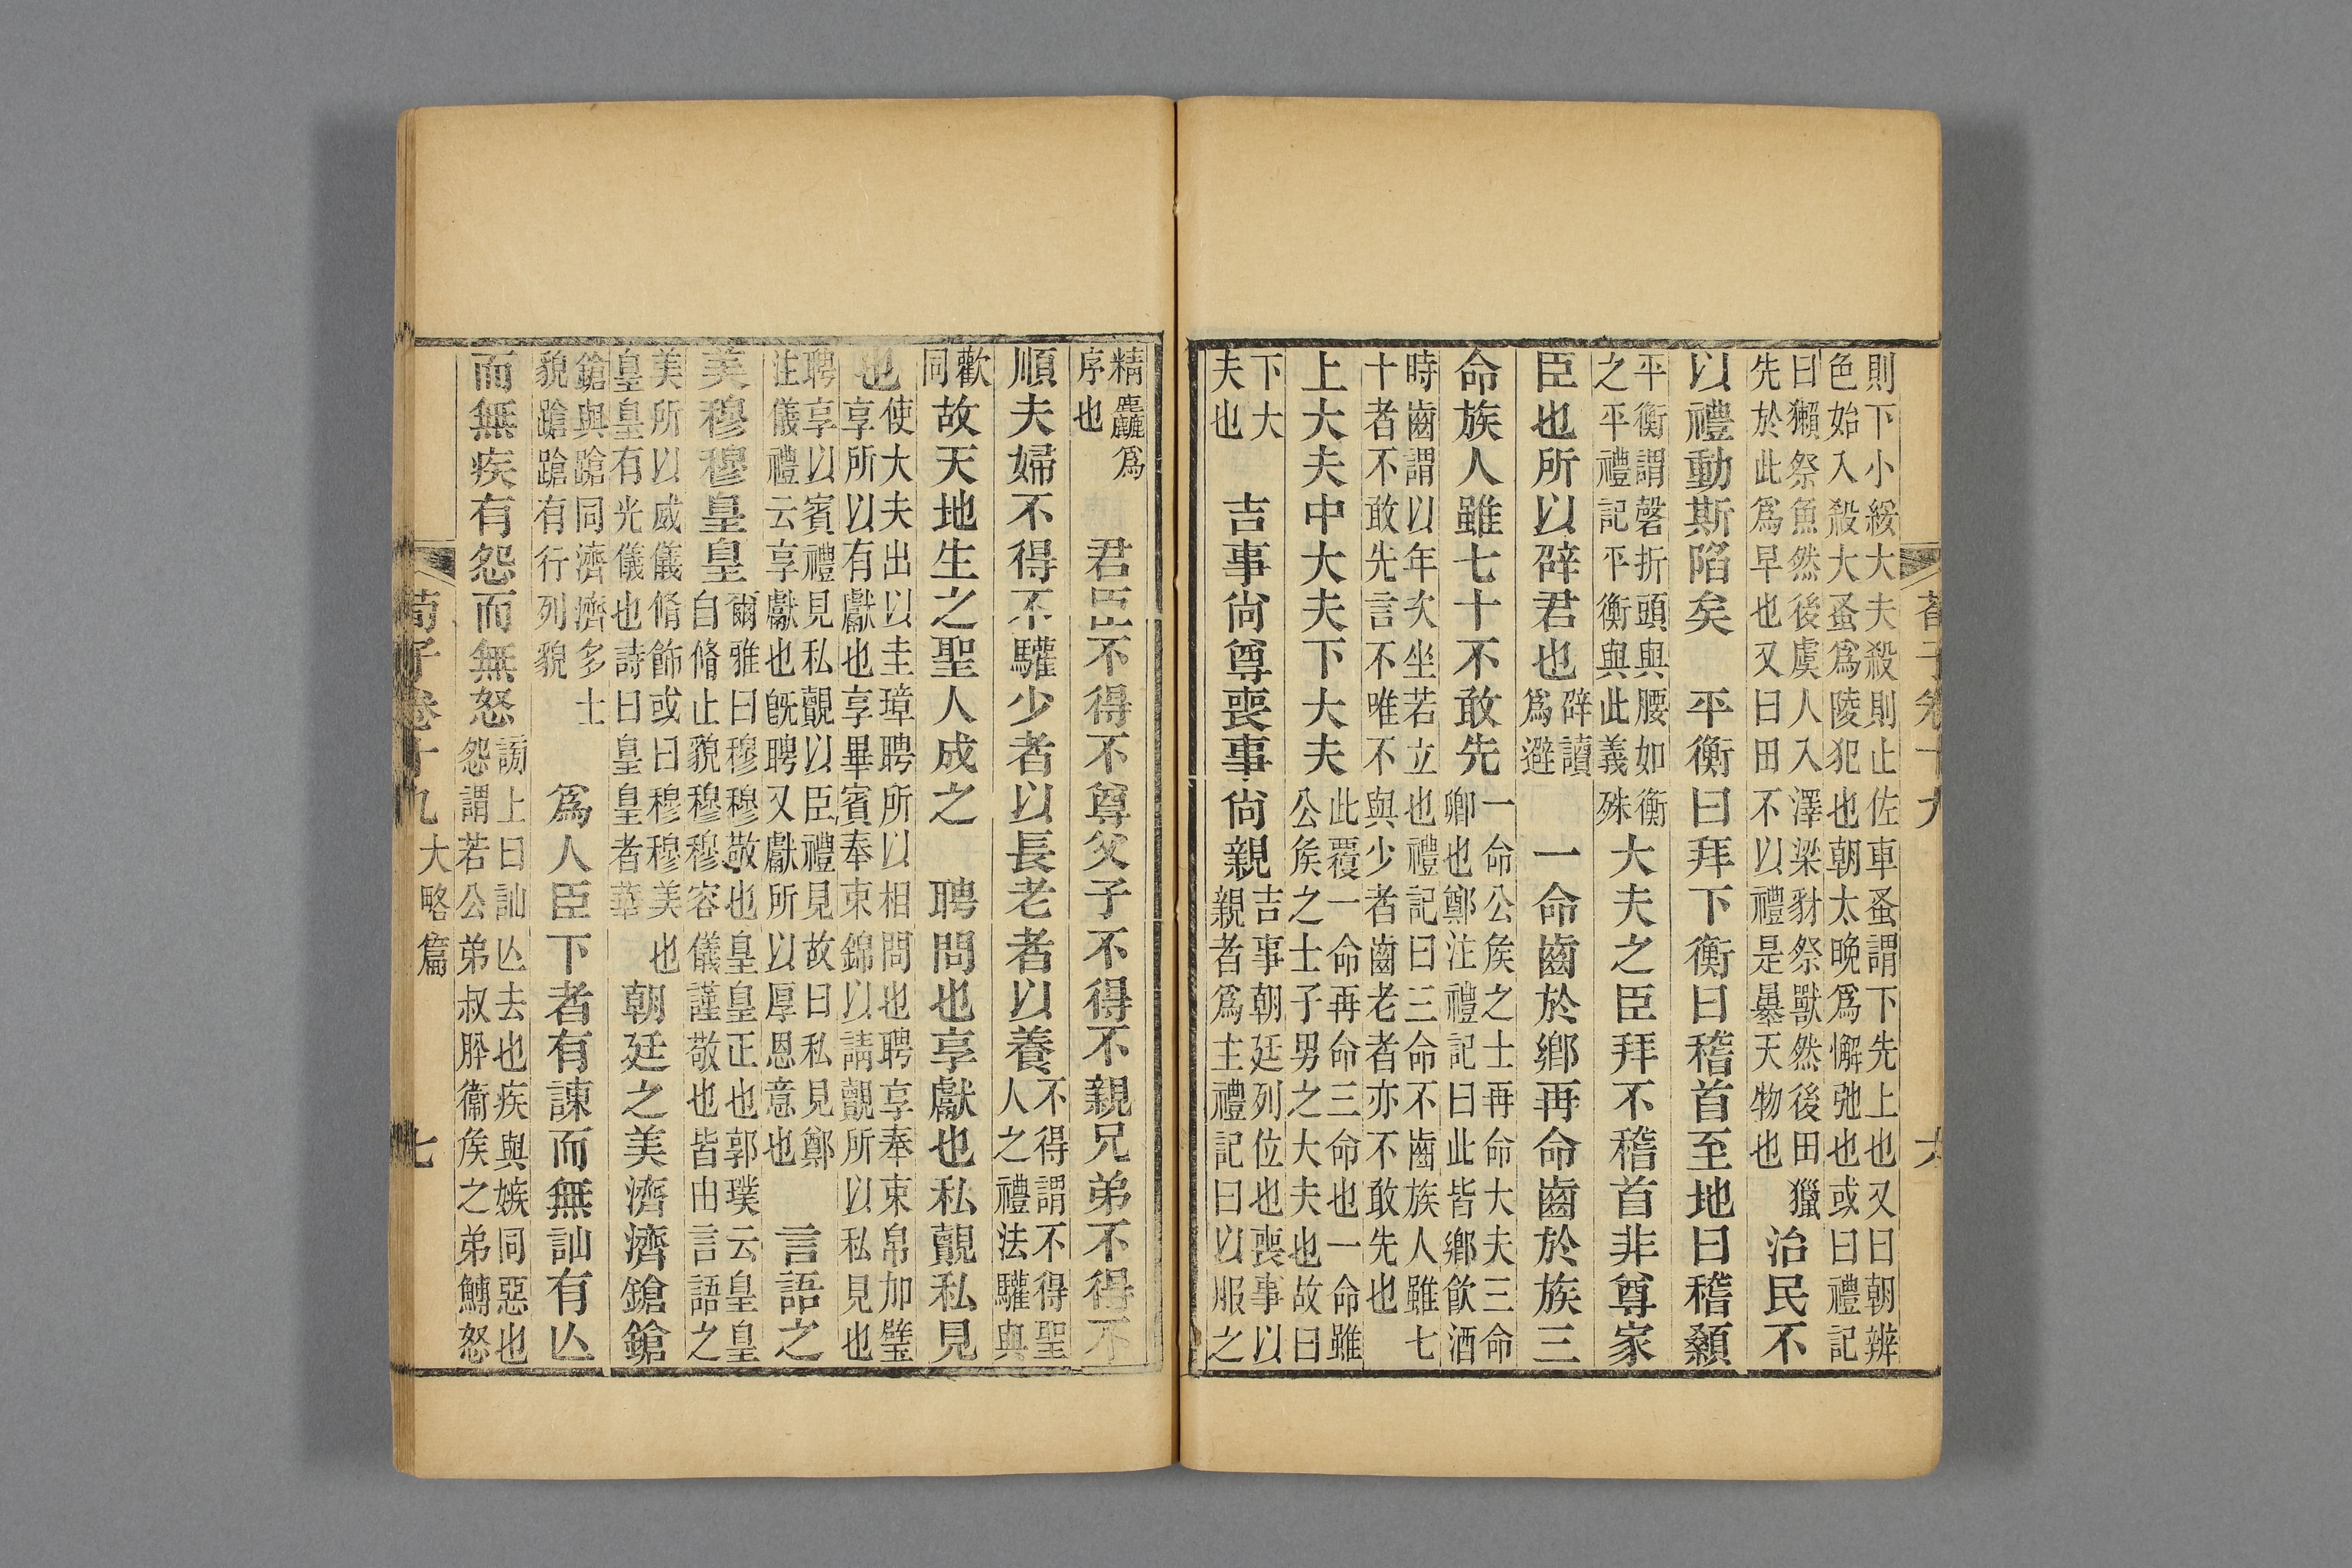 荀子卷十九 六
則下小綏大夫殺則止佐車蚤謂下先上也又曰朝辨
色始入殺大蚤爲陵犯也朝太晚爲懈弛也或曰禮記
曰獺祭魚然後虞人入澤梁豺祭獸然後田獵
先於此爲早也又曰田不以禮是暴天物也
治民不
以禮動斯陷矣 平衡曰拜下衡曰稽首至地曰稽顙
平衡謂磬折頭與腰如衡
之平禮記平衡與此義殊
大夫之臣拜不稽首非尊家
臣也所以辟君也
辟讀
爲避
一命齒於鄉再命齒於族三
命族人雖七十不敢先
一命公矦之士再命大夫三命
卿也鄭注禮記曰此皆鄉飮酒
時齒謂以年次坐若立也禮記曰三命不齒族人雖七
十者不敢先言不唯不與少者齒老者亦不敢先也
上大夫中大夫下大夫
此覆一命再命三命也一命雖
公矦之士子男之大夫也故曰
下大
夫也
吉事尙尊喪事尙親
吉事朝廷列位也喪事以
親者爲主禮記曰以服之
精麤爲
序也
君臣不得不尊父子不得不親兄弟不得不
順夫婦不得不驩少者以長老者以養
不得謂不得聖
人之禮法驩與
歡
同
故天地生之聖人成之 聘問也享獻也私覿私見
也
使大夫出以圭璋聘所以相問也聘享奉束帛加璧
享所以有獻也享畢賓奉束錦以請覿所以私見也
聘享以賓禮見私覿以臣禮見故曰私見鄭
注儀禮云享獻也旣聘又獻所以厚恩意也
言語之
美穆穆皇皇
爾雅曰穆穆敬也皇皇正也郭璞云皇皇
自脩止貌穆穆容儀謹敬也皆由言語之
美所以威儀脩飾或曰穆穆美也
皇皇有光儀也詩曰皇皇者華
朝廷之美濟濟鎗鎗
鎗與蹌同濟濟多士
貌蹌蹌有行列貌
爲人臣下者有諫而無訕有亾
而無疾有怨而無怒
謗上曰訕亾去也疾與嫉同惡也
怨謂若公弟叔肸衞矦之弟鱄怒
荀子卷十九大略篇 七